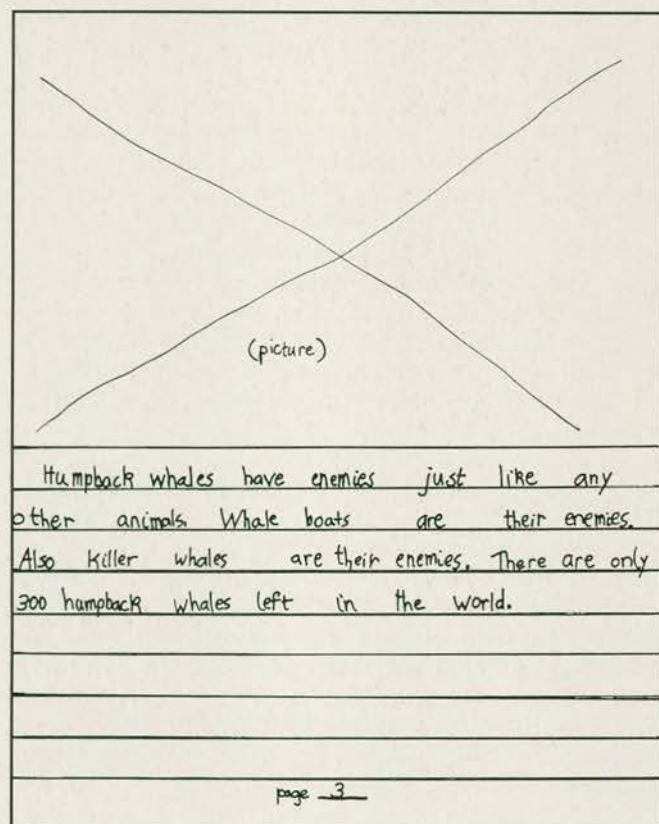 (picture)
Humpback whales have enemies just like any
other animals. Whale boats are their enemies.
Also killer whales are their enemies. There are only
300 humpback whales left in the world.
page 3